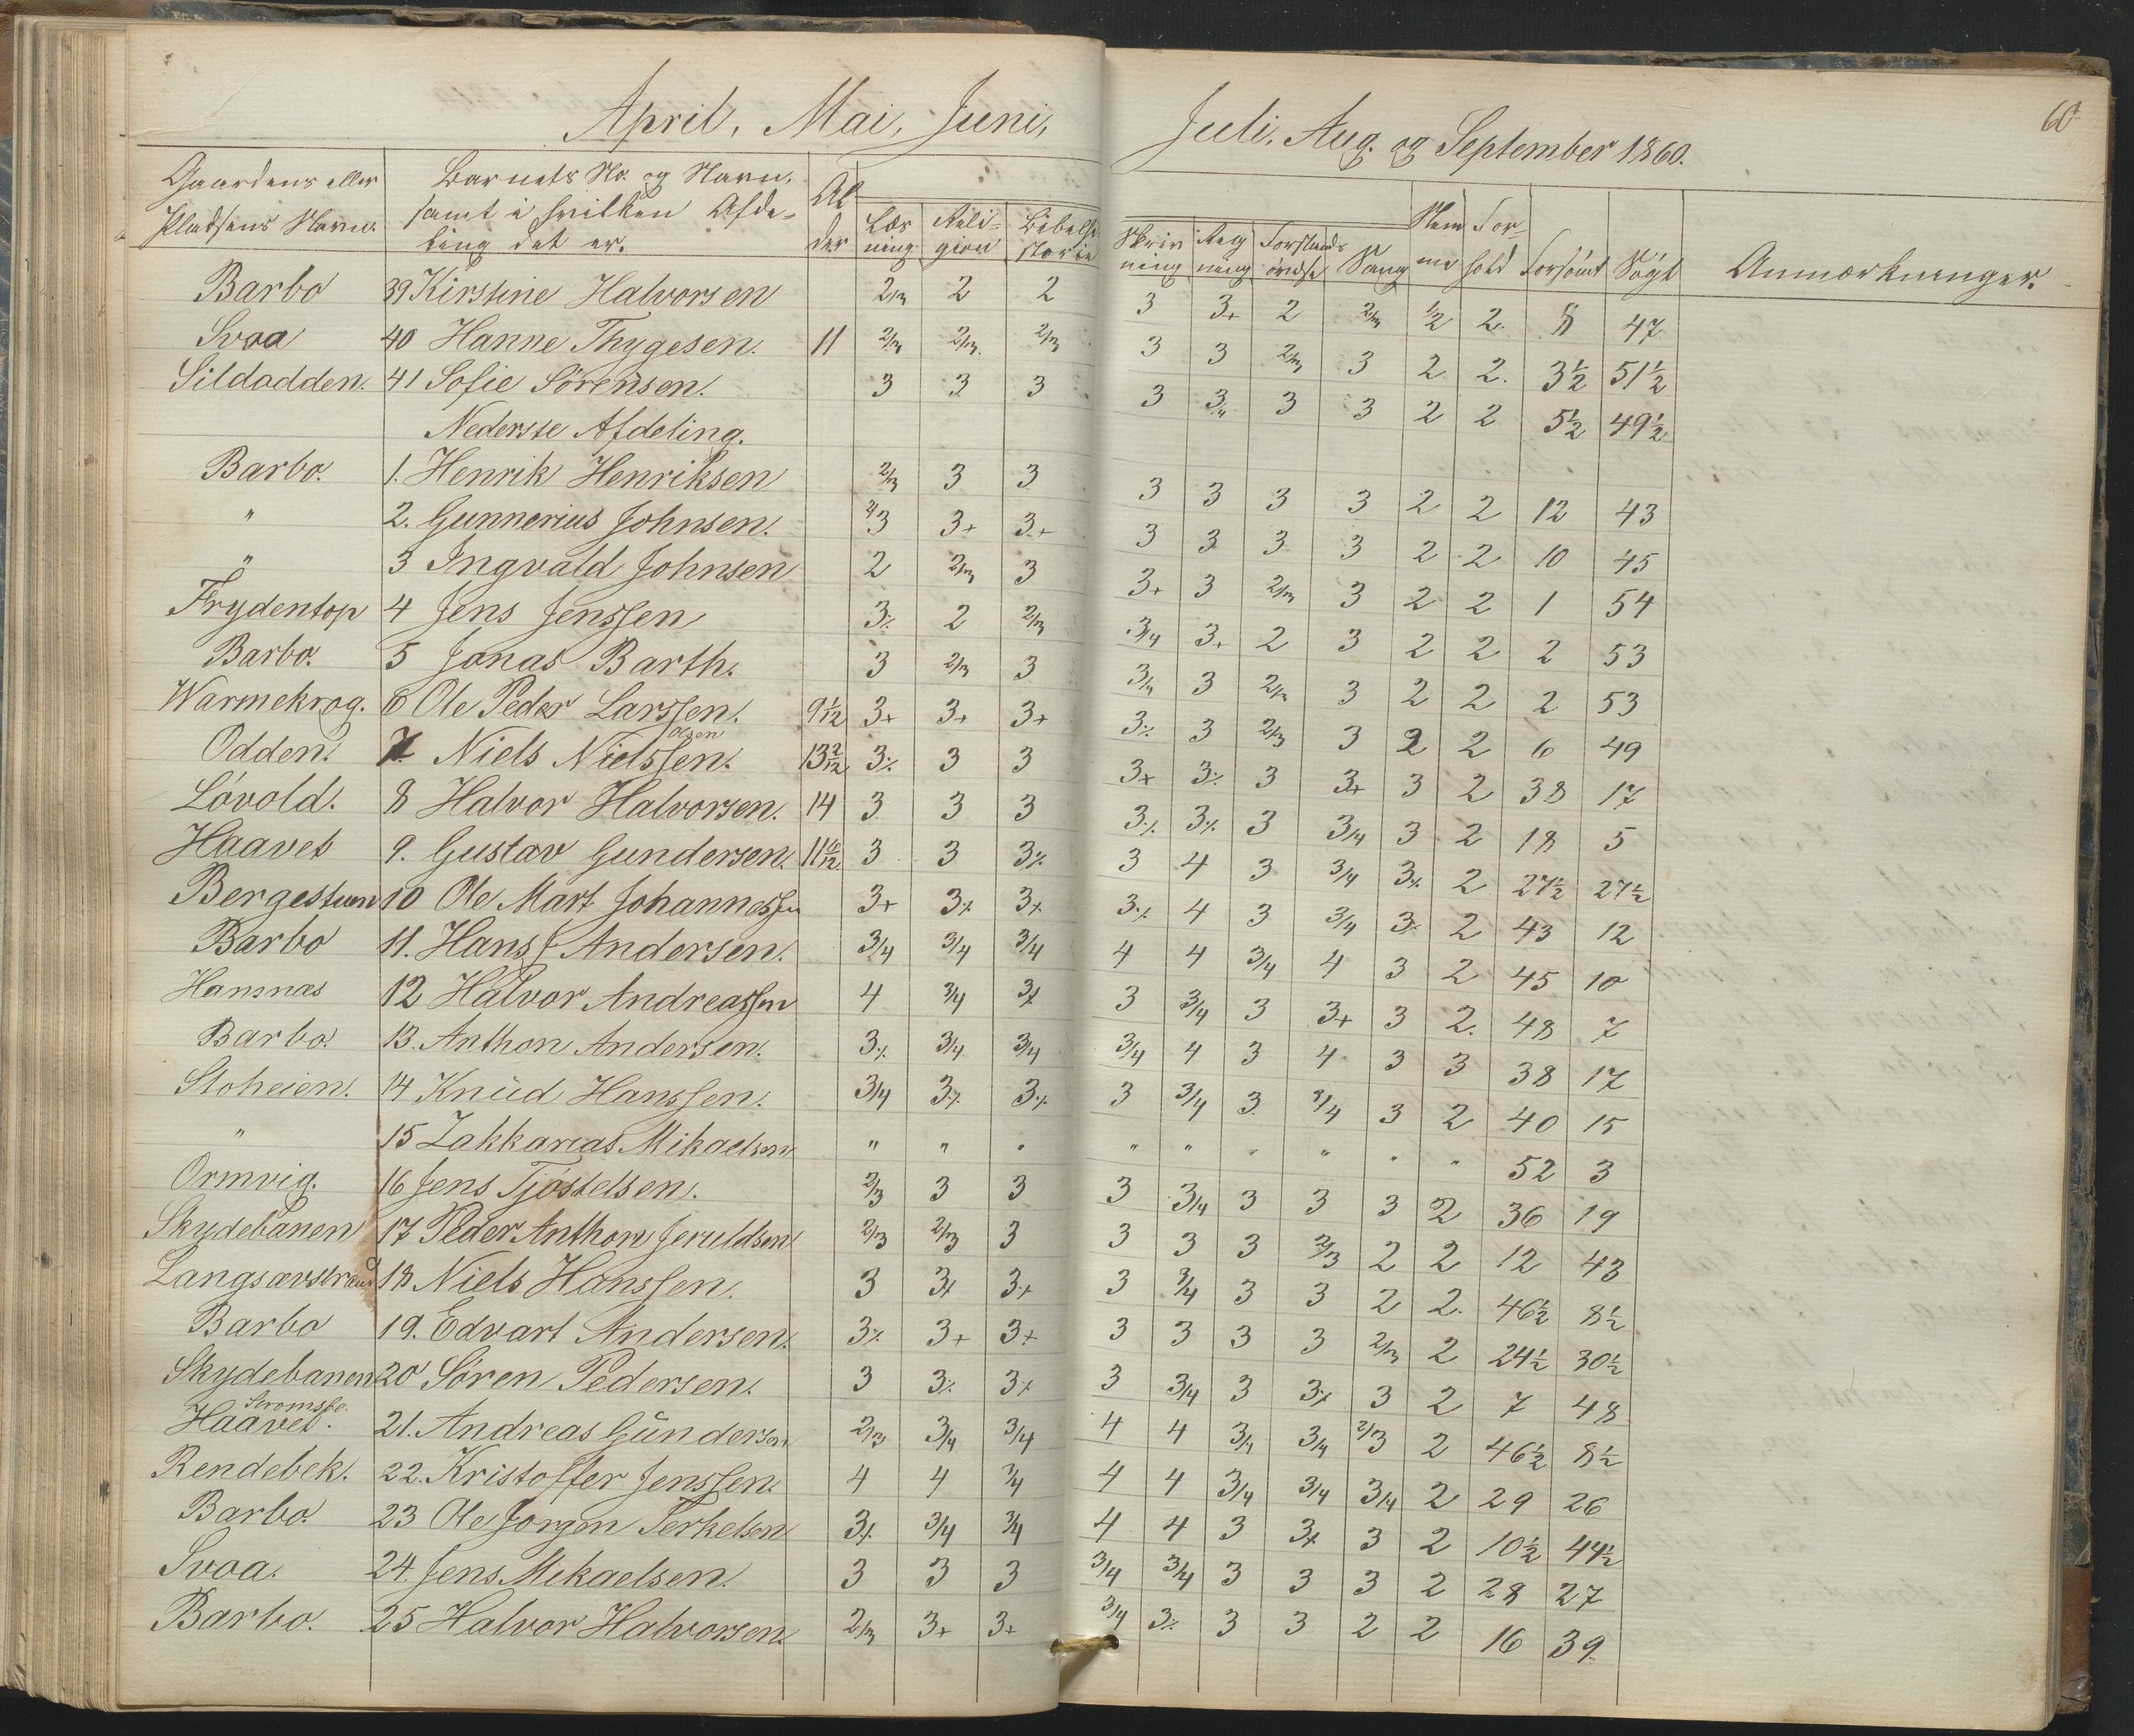 April, Mai, Juni, Juli, Aug. og September 1860. 60
Gaardens eller Pladsens Navn. | Barnets No. og Navn, samt i hvilken Afdeling det er. | Alder | Læsning | Religion | Bibelhistorie | Skrivning | Regning | Forstandsøvelse | Sang | Nemme | Forhold | Forsømt | Søgt | Anmærkninger.
Barbo 39 Kirstine Halvorsen 2/3 2 2 3 3+ 2 2/3 1/2 2. 8 47
Svoa 40 Hanne Thygesen. 11 2/3 2/3. 2/3 3 3 2/3 3 2 2. 3½ 51½
Sildodden. 41 Sofie Sørensen. 3 3 3 3 3 3 3 2 2 5½ 49½
Nederste Afdeling.
Barbo. 1. Henrik Henriksen 2/3 3 3 3 3 3 3 2 2 12 43
" 2. Gunnerius Johnsen. 3 3+ 3+ 3 3 3 3 2 2 10 45
" 3 Ingvald Johnsen 2 2/3 3 3+ 3 2/3 3 2 2 1 54
Frydentop 4 Jens Jenssen 3% 2 2/3 3/4 3+ 2 3 2 2 2 53
Barbo. 5 Jonas Barth. 3 2/3 3 3/4 3 2/3 3 2 2 2 53
Warmekrog. 6 Ole Peder Larssen. 9 1/12 3+ 3+ 3+ 3% 3 2/3 3 2 2 6 49
Odden. 7. Niels Nielssen. Olsen 13 2/12 3% 3 3 3+ 3% 3 3+ 3 2 38 17
Lóvold. 8 Halvor Halvorsen. 14 3 3 3 3% 3% 3 3/4 3 2 18 5
Haavet 9. Gustav Gundersen. 11 6/12 3 3 3% 3 4 3 3/4 3% 2 27½ 27½
Bergestuen 10 Ole Mart. Johannessen 3+ 3% 3% 3% 4 3 3/4 3% 2 43 12
Barbo 11. Hans J Andersen. 3/4 3/4 3/4 4 4 3/4 4 3 2 45 10
Hansnæs 12 Halvor Andreassen 4 3/4 3% 3 3/4 3 3+ 3 2. 48 7
Barbo. 13. Anthon Andersen. 3% 3/4 3/4 3/4 4 3 4 3 3 38 17
Stoheien. 14 Knud Hanssen. 3/4 3% 3% 3 3/4 3 3/4 3 2 40 15
" 15 Zakkarias Mikaelsen " " " " " " " " " 52 3
Ormvig. 16 Jens Tjóstelsen. 2/3 3 3 3 3/4 3 3 3 2 36 19
Skydebanen 17 Peder Anthon Jeruldsen 2/3 2/3 3 3 3 3 2/3 2 2 12 43
Langsævstrand 18 Niels Hanssen. 3 3% 3+ 3 3/4 3 3 2 2. 46½ 8½
Barbo 19. Edvart Andersen. 3% 3+ 3+ 3 3 3 3 2/3 2 24½ 30½
Skydebanen 20 Sören Pedersen. 3 3% 3% 3 3/4 3 3% 3 2 7 48
Haavet. Stromsbo. 21. Andreas Gundersen 2/3 3/4 3/4 4 4 3/4 3/4 2/3 2 46½ 8½
Rendebek. 22. Kristoffer Jenssen. 4 4 3/4 4 4 3/4 3/4 3/4 2 29 26
Barbo. 23 Ole Jorgen Terkelsen 3% 3/4 3/4 4 4 3 3% 3 2 10½ 44½
Svoa. 24. Jens Mikaelsen. 3 3 3 3/4 3/4 3 3 3 2 28 27
Barbo. 25 Halvor Halvorsen. 2/3 3+ 3+ 3/4 3% 3 3 2 2 16 39.